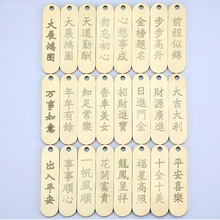 大展鴻圖
大展鴻圖
天道酬勤
勿忘初心
心想事成
金榜題名
步步高升
前程似錦
萬事如意
年年有餘
知足常樂
香車美女
招財進寶
日進鬥金
財源廣進
大吉大利
出入平安
事事順心
一帆風順
花開富貴
龍鳳呈祥
福星高照
十全十美
平安喜樂